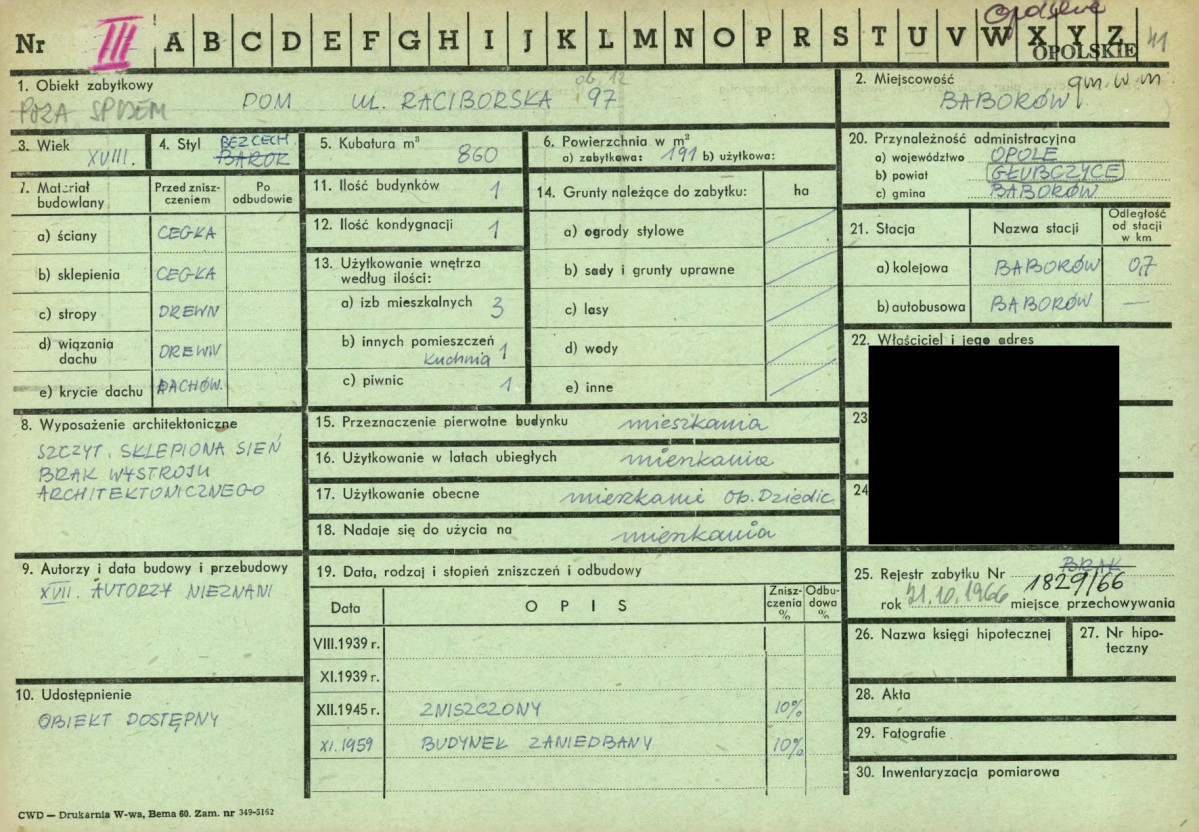 Opolskie
Nr III A B C D E F G H I J K L M N O P R S T U V W X Y Z 41
OPOLSKIE
1. Obiekt zabytkowy
ob. 12
POZA SPISEM
DOM UL. RACIBORSKA 97
2. Miejscowość
gm. w m.
BABORÓW
3. Wiek
XVIII.
4. Styl
BEZ CECH
BAROK
5. Kubatura m³
860
6. Powierzchnia w m²
a) zabytkowa: 191 b) użytkowa:
7. Materiał budowlany
Przed zniszczeniem
Po odbudowie
a) ściany CEGŁA
b) sklepienia CEGŁA
c) stropy DREWN
d) wiązania dachu DREWN
e) krycie dachu DACHÓW.
8. Wyposażenie architektoniczne
SZCZYT. SKLEPIONA SIEŃ
BRAK WYSTROJU
ARCHITEKTONICZNEGO
9. Autorzy i data budowy i przebudowy
XVIII. AUTORZY NIEZNANI
10. Udostępnienie
OBIEKT DOSTĘPNY
11. Ilość budynków 1
12. Ilość kondygnacji 1
13. Użytkowanie wnętrza
według ilości:
a) izb mieszkalnych 3
b) innych pomieszczeń
kuchnia 1
c) piwnic 1
14. Grunty należące do zabytku: ha
a) ogrody stylowe
b) sady i grunty uprawne
c) lasy
d) wody
e) inne
15. Przeznaczenie pierwotne budynku mieszkania
16. Użytkowanie w latach ubiegłych mieszkania
17. Użytkowanie obecne mieszkanie Ob. Dziedic
18. Nadaje się do użycia na mieszkania
19. Data, rodzaj i stopień zniszczeń i odbudowy
Data
OPIS
Zniszczenia %
Odbudowa %
VIII.1939 r.
XI.1939 r.
XII.1945 r. ZNISZCZONY 10%
XI.1959 BUDYNEK ZANIEDBANY 10%
20. Przynależność administracyjna
a) województwo OPOLE
b) powiat GŁUBCZYCE
c) gmina BABORÓW
21. Stacja
Nazwa stacji
Odległość od stacji w km
a) kolejowa BABORÓW 0,7
b) autobusowa BABORÓW —
22. Właściciel i jego adres
23
24
25. Rejestr zabytku Nr BRAK
1829/66
rok 31.10.1966 miejsce przechowywania
26. Nazwa księgi hipotecznej
27. Nr hipoteczny
28. Akta
29. Fotografie
30. Inwentaryzacja pomiarowa
CWD — Drukarnia W-wa, Bema 60. Zam. nr 349-5162